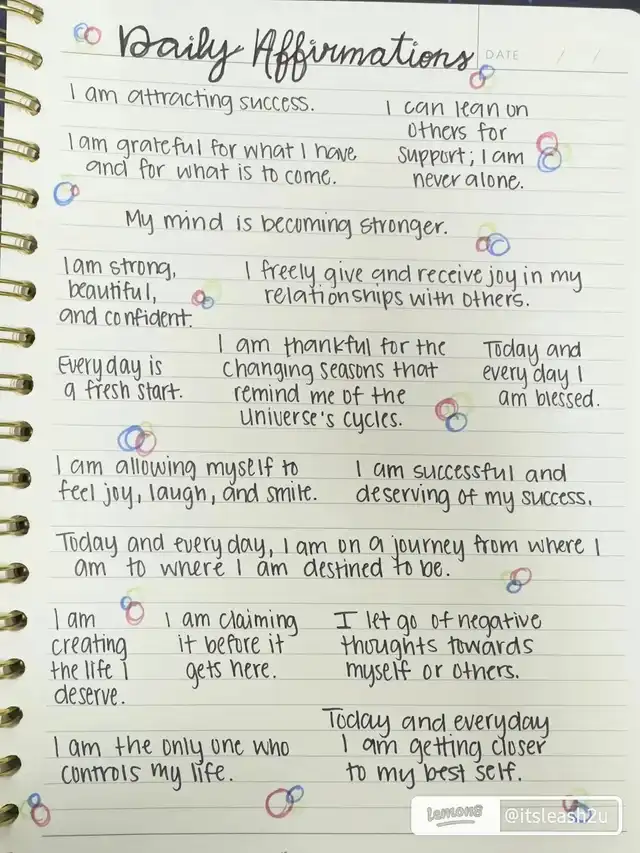 Daily Affirmations
DATE / /
I am attracting success.
I can lean on
others for
support; I am
never alone.
I am grateful for what I have
and for what is to come.
My mind is becoming stronger.
I am strong,
beautiful,
and confident.
I freely give and receive joy in my
relationships with others.
Everyday is
a fresh start.
I am thankful for the
changing seasons that
remind me of the
universe's cycles.
Today and
every day I
am blessed.
I am allowing myself to
feel joy, laugh, and smile.
I am successful and
deserving of my success.
Today and every day, I am on a journey from where I
am to where I am destined to be.
I am
creating
the life I
deserve.
I am claiming
it before it
gets here.
I let go of negative
thoughts towards
myself or others.
I am the only one who
controls my life.
Today and everyday
I am getting closer
to my best self.
lemons @itsleash2u